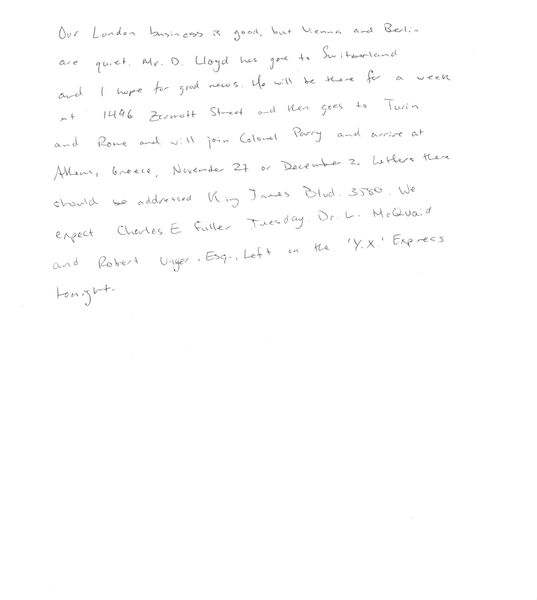 Our London business is good, but Vienna and Berlin
are quiet. Mr. D. Lloyd has gone to Switzerland
and I hope for good news. He will be there for a week
at 1496 Zermott Street and then goes to Turin
and Rome and will join Colonel Parry and arrive at
Athens, Greece, November 27 or December 2. Letters there
should be addressed King James Blvd. 3580. We
expect Charles E Fuller Tuesday. Dr. L. McQuaid
and Robert Unger, Esq., Left on the 'Y.X.' Express
tonight.